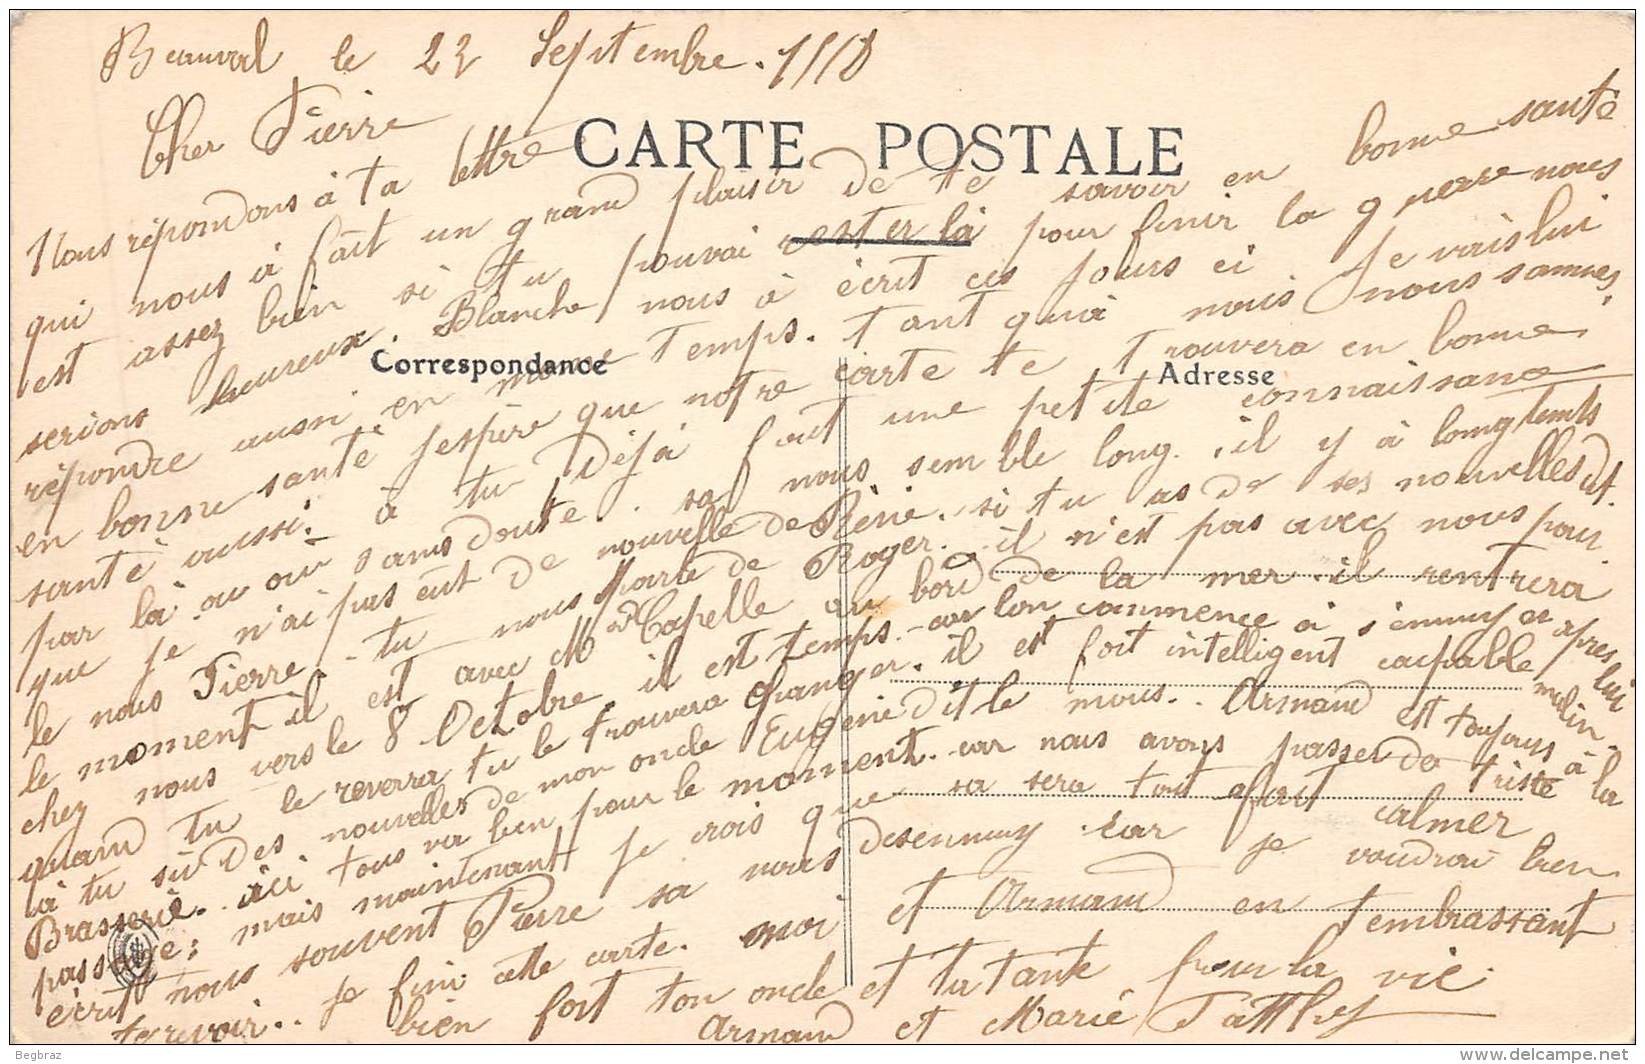 Beauval le 22 Septembre. 1918
Cher Pierre
CARTE POSTALE
Nous répondons à ta lettre
qui nous à fait un grand plaisir de te savoir en bonne santé
est assez bien si tu pouvai rester là pour finir la guerre nous
serions heureux. Blanche nous à écrit ces jours ci. Je vais lui
répondre aussi en même temps. tant qu'à nous. nous sommes
en bonne santé j'espère que notre carte te trouvera en bonne
Correspondance
Adresse
santé aussi. à tu déjà fait une petite connaissance
par là. ou oui sans doute. sa nous semble long. il y à longtemts
que je n'ai pas eut de nouvelle de Réné. si tu as de ses nouvelles dit
le nous Pierre. tu nous parle de Roger. il n'est pas avec nous pour
le moment il est avec M Capelle au bord de la mer. il rentrera
chez nous vers le 8 Octobre. il est temps. car lon commence à s'ennuyer après lui
quand tu le reverra tu le trouvera changer. il est fort intelligent caçpable malin.
à tu sù des nouvelles de mon oncle Eugéne dit le nous. Armand est toujours à la
Brasserie. ici tous va bien pour le moment. car nous avons passer de triste
passage; mais maintenant je crois que sa sera tout afait calmer
écrit nous souvent Pierre sa nous desennuy car je voudrai bien
te revoir.. je fini cette carte. moi et Armand en t'embrassant
bien fort ton oncle et ta tante pour la vie.
Armand et Marie
Begbraz
www.delcampe.net